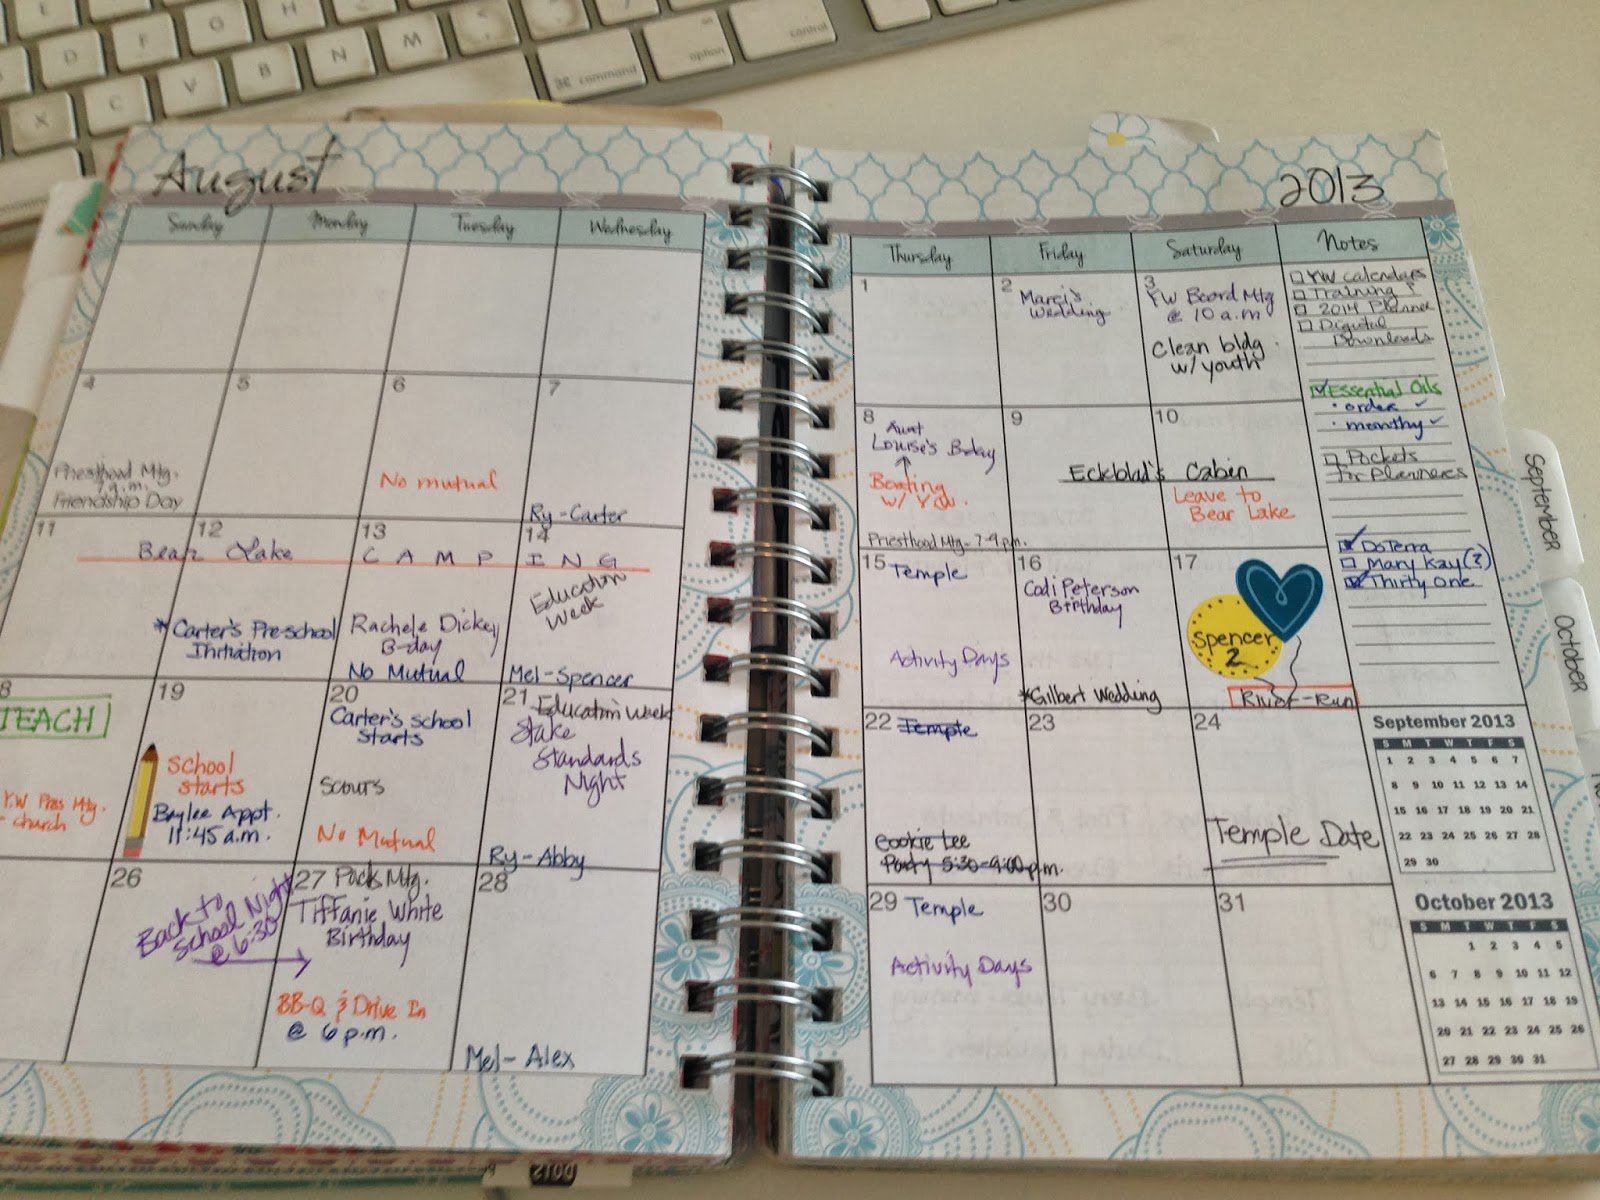 D
F
G
H
X
C
V
B
N
M
⌘ command
option
control
August
Sunday Monday Tuesday Wednesday
4
5
6
7
Priesthood Mtg.
a.m.
Friendship Day
No mutual
Ry-Carter
11
12
13
14
Bear Lake CAMPING
*Carter's Pre-school
Initiation
Rachele Dickey
B-day
No Mutual
Education
Week
Mel-Spencer
8
TEACH
Y.W Pres Mtg.
- church
19
School
starts
Baylee Appt.
11:45 a.m.
20
Carter's school
starts
Scouts
No Mutual
21
Education Week
Stake
Standards
Night
Ry-Abby
26
Back to
School Night
@ 6:30
27 Pack Mtg.
Tiffanie White
Birthday
BB-Q & Drive In
@ 6 p.m.
28
Mel-Alex
2013
Thursday Friday Saturday Notes
1
2
Marci's
Wedding
3
YW Board Mtg
@ 10 a.m
Clean bldg.
w/ youth
8
Aunt
Louise's B-day
Boating
w/
Priesthood Mtg-7-9p.m.
9
10
Eckblad's Cabin
Leave to
Bear Lake
15
Temple
Activity Days
16
Codi Peterson
Birthday
*Gilbert Wedding
17
Spencer
2
River-Run
22 Temple
Cookie Lee
Party 5:30-9:00p.m.
23
24
Temple Date
29 Temple
Activity Days
30
31
YW calendars
Training
2014 Planner
Digital
Downloads
Essential Oils
• order
• monthy
Pockets
for Planners
DoTerra
Mary Kay(?)
Thirty One
September 2013
S M T W T F S
1 2 3 4 5 6 7
8 9 10 11 12 13 14
15 16 17 18 19 20 21
22 23 24 25 26 27 28
29 30
October 2013
S M T W T F S
1 2 3 4 5
6 7 8 9 10 11 12
13 14 15 16 17 18 19
20 21 22 23 24 25 26
27 28 29 30 31
September
October